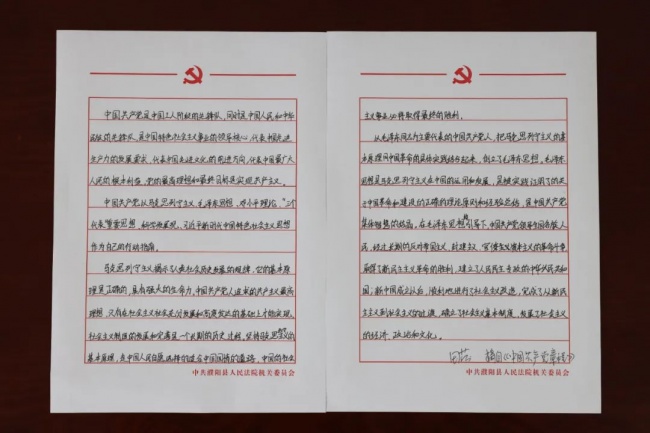 中国共产党是中国工人阶级的先锋队，同时是中国人民和中华
民族的先锋队，是中国特色社会主义事业的领导核心，代表中国先进
生产力的发展要求，代表中国先进文化的前进方向，代表中国最广大
人民的根本利益。党的最高理想和最终目标是实现共产主义。
中国共产党以马克思列宁主义、毛泽东思想、邓小平理论、“三个
代表”重要思想、科学发展观、习近平新时代中国特色社会主义思想
作为自己的行动指南。
马克思列宁主义揭示了人类社会历史发展的规律，它的基本原
理是正确的，具有强大的生命力。中国共产党人追求的共产主义最高
理想，只有在社会主义社会充分发展和高度发达的基础上才能实现。
社会主义制度的发展和完善是一个长期的历史过程。坚持马克思列宁主义的
基本原理，走中国人民自愿选择的适合中国国情的道路，中国的社会
中共濮阳县人民法院机关委员会
主义事业必将取得最终的胜利。
以毛泽东同志为主要代表的中国共产党人，把马克思列宁主义的基
本原理同中国革命的具体实践结合起来，创立了毛泽东思想。毛泽东
思想是马克思列宁主义在中国的运用和发展，是被实践证明了的关
于中国革命和建设的正确的理论原则和经验总结，是中国共产党
集体智慧的结晶。在毛泽东思想指引下，中国共产党领导全国各族人
民，经过长期的反对帝国主义、封建主义、官僚资本主义的革命斗争，
取得了新民主主义革命的胜利，建立了人民民主专政的中华人民共和
国；新中国成立以后，顺利地进行了社会主义改造，完成了从新民
主主义到社会主义的过渡，确立了社会主义基本制度，发展了社会主义
的经济、政治和文化。
摘自《中国共产党章程》
中共濮阳县人民法院机关委员会